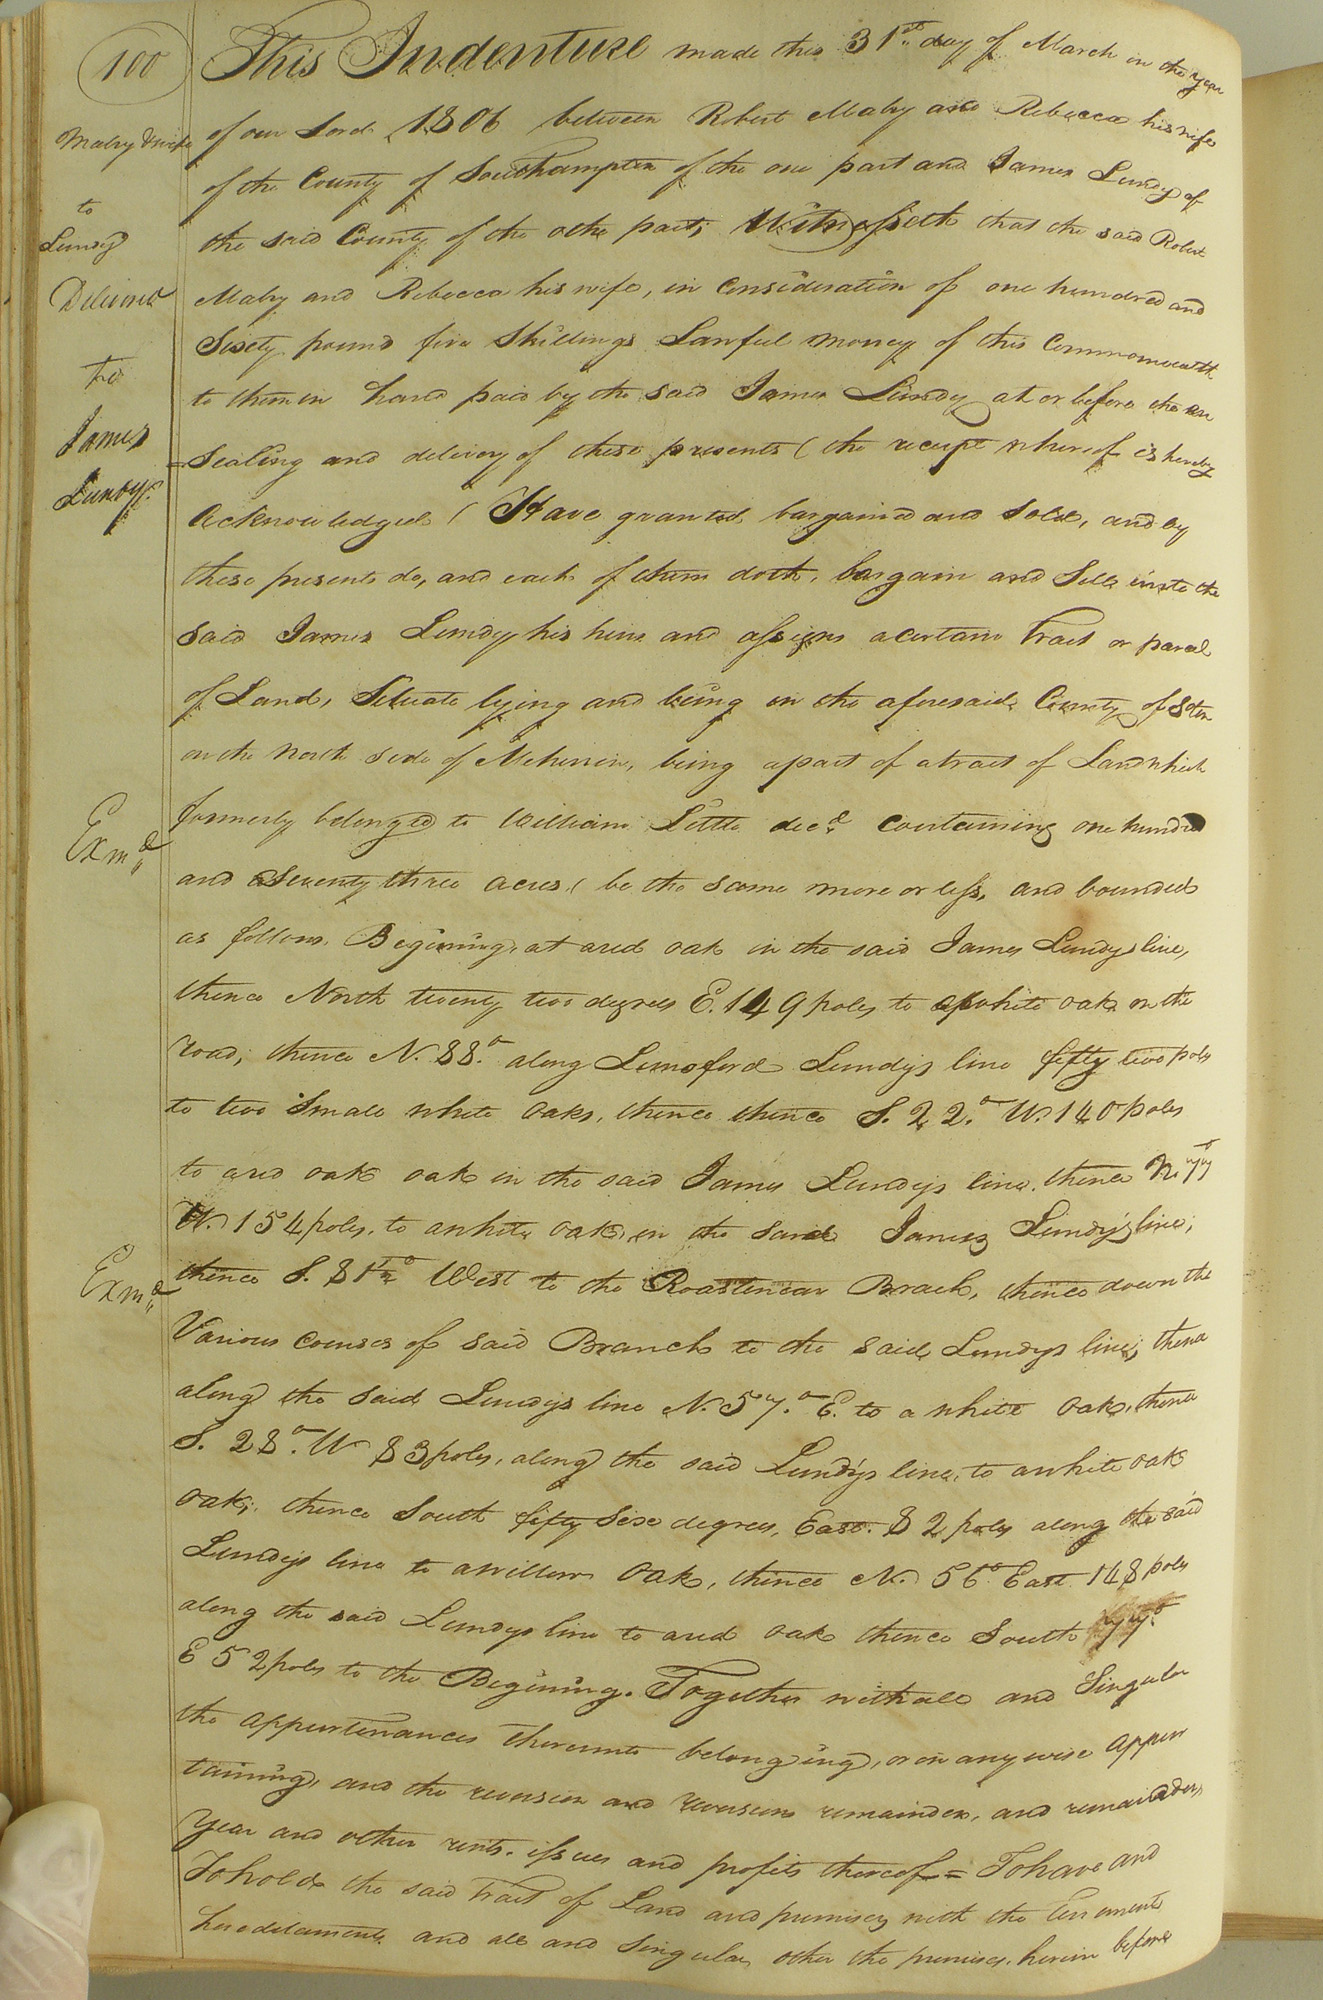 100
This Indenture made this 31st. day of March in the year
Mabry & wife
of our Lord 1806 between Robert Mabry and Rebecca his wife
of the County of Southampton of the one part and James Lundy of
to
Lundy
the said County of the othe part; Witnesseth that the said Robert
Deliverd
Mabry and Rebecca his wife, in Consideration of one hundred and
Sixty pound five Shillings Lawful Money of this Commonwealth
to
to them in hand paid by the said James Lundy at or before the en
James
=Sealing and delivery of these presents (the receipt whereof is hereby
Lundy.
Acknowledged ( Have granted bargained and Sold, and by
these presents do, and each of them doth, bargain and Sell unto the
said James Lundy his heirs and assigns a certain Tract or parcel
of Land, Situate lying and being in the aforesaid County of Soton
on the North side of Meherrin, being a part of a tract of Land which
formerly belonged to William Little decd. containing one hundred
Exmd.
and Seventy three acres, (be the same more or less, and bounded
as follows. Begining, at a red oak in the said James Lundys line,
thence North twenty two degrees E. 149 poles to a white oak on the
road, thence N. 88.o along Lunsford Lundys line fifty two poles
to two Small white oaks, thence thence S. 22.o W. 140 poles
to a red oak oak in the said James Lundys line. thence N. 77o
W. 154 poles, to a white oak, in the said James Lundy's line;
Exmd.
thence S. 81 1/2o West to the Roastinear Brach, thence down the
Various courses of said Branch to the said Lundys line; thence
along the said Lundys line N. 57.o E. to a white oak, thence
S. 28o. W 83 poles, along the said Lundys line, to a white oak
oak; thence South fifty Six degrees, East. 82 poles along the said
Lundys line to a willow oak, thence N. 56o. East 148 poles
along the said Lundys line to a red oak thence South 77.o
E 52 poles to the Begining. Together with all and Singular
the appurtenances thereunto belonging, or in any wise appur
taining, and the reversion and reversions remainder, and remainders,
Year and other rents. issues and profits thereof = To have and
To hold the said Tract of Land and premises with the tenements
hereditaments and all and Singular other the premises. herein before